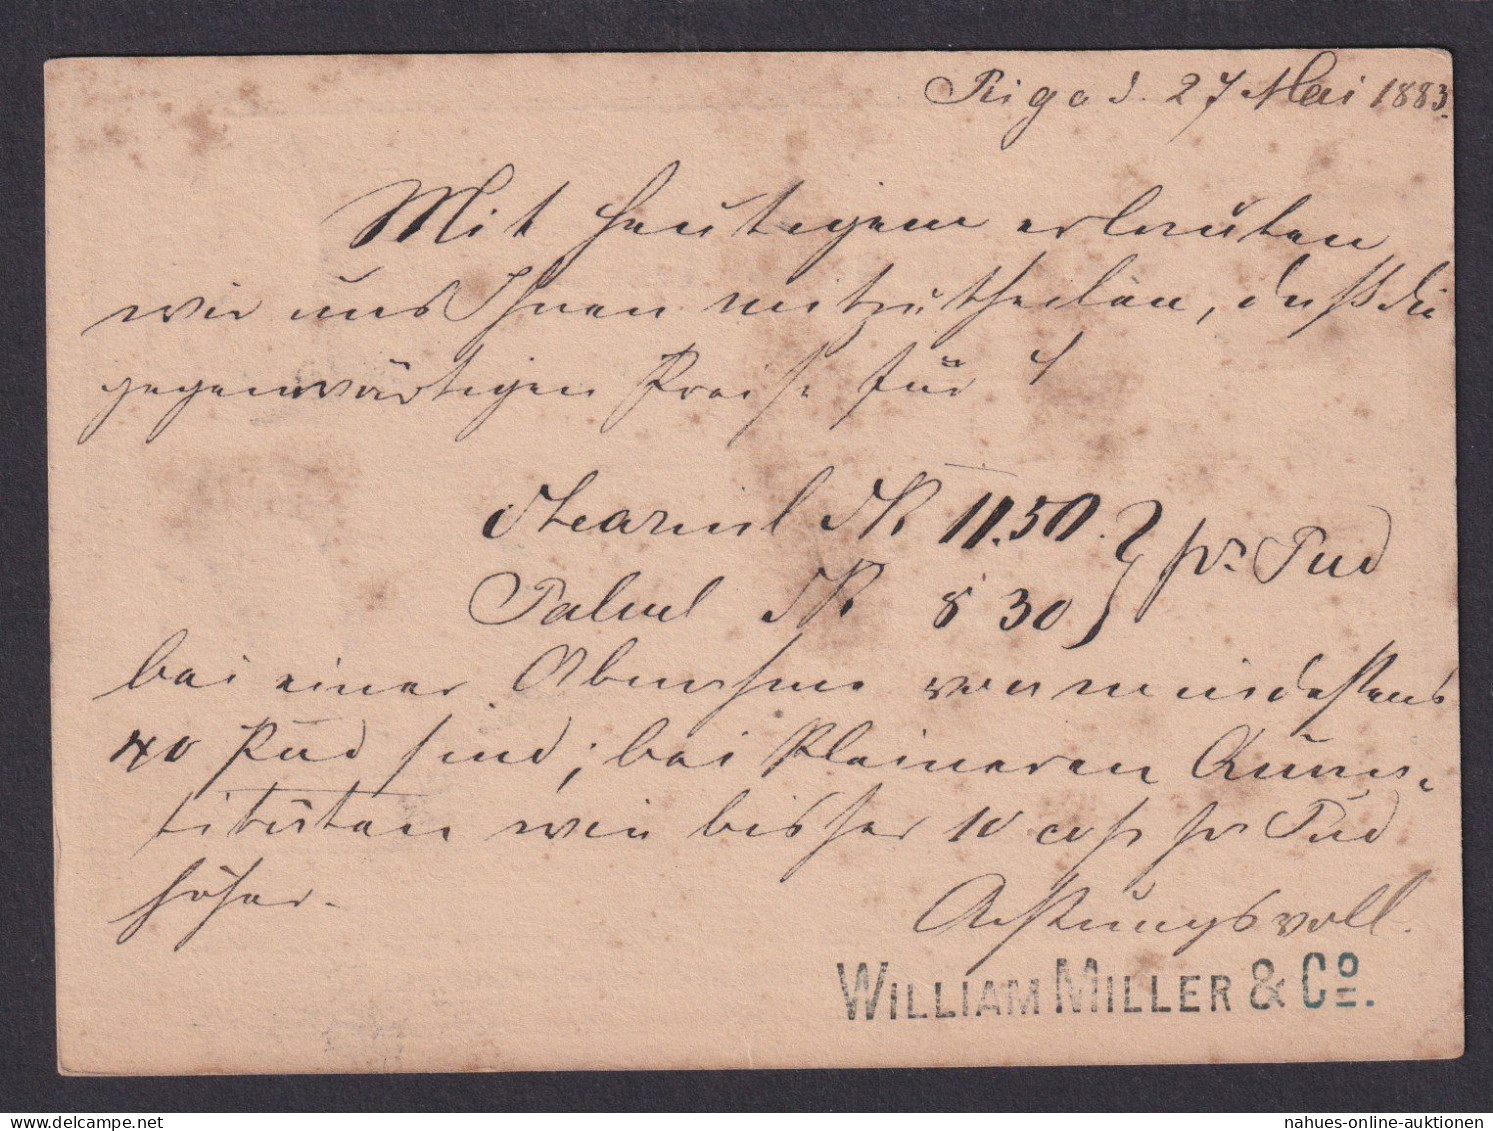 Riga d. 27 Mai 1883.
Mit Heutigem erlauben
wir uns Ihnen mitzutheilen, daß die
gegenwärtigen Preise für
Stearinl SR 11.50. } pr. Pud
Palml SR 8 30
bei einer Abnahme von mindestens
40 Pud sind; bei kleineren Quan-
titäten wie bisher 10 cop pr Pud
höher.
Achtungsvoll.
WILLIAM MILLER & Co.
nahues-online-auktionen
www.delcampe.net